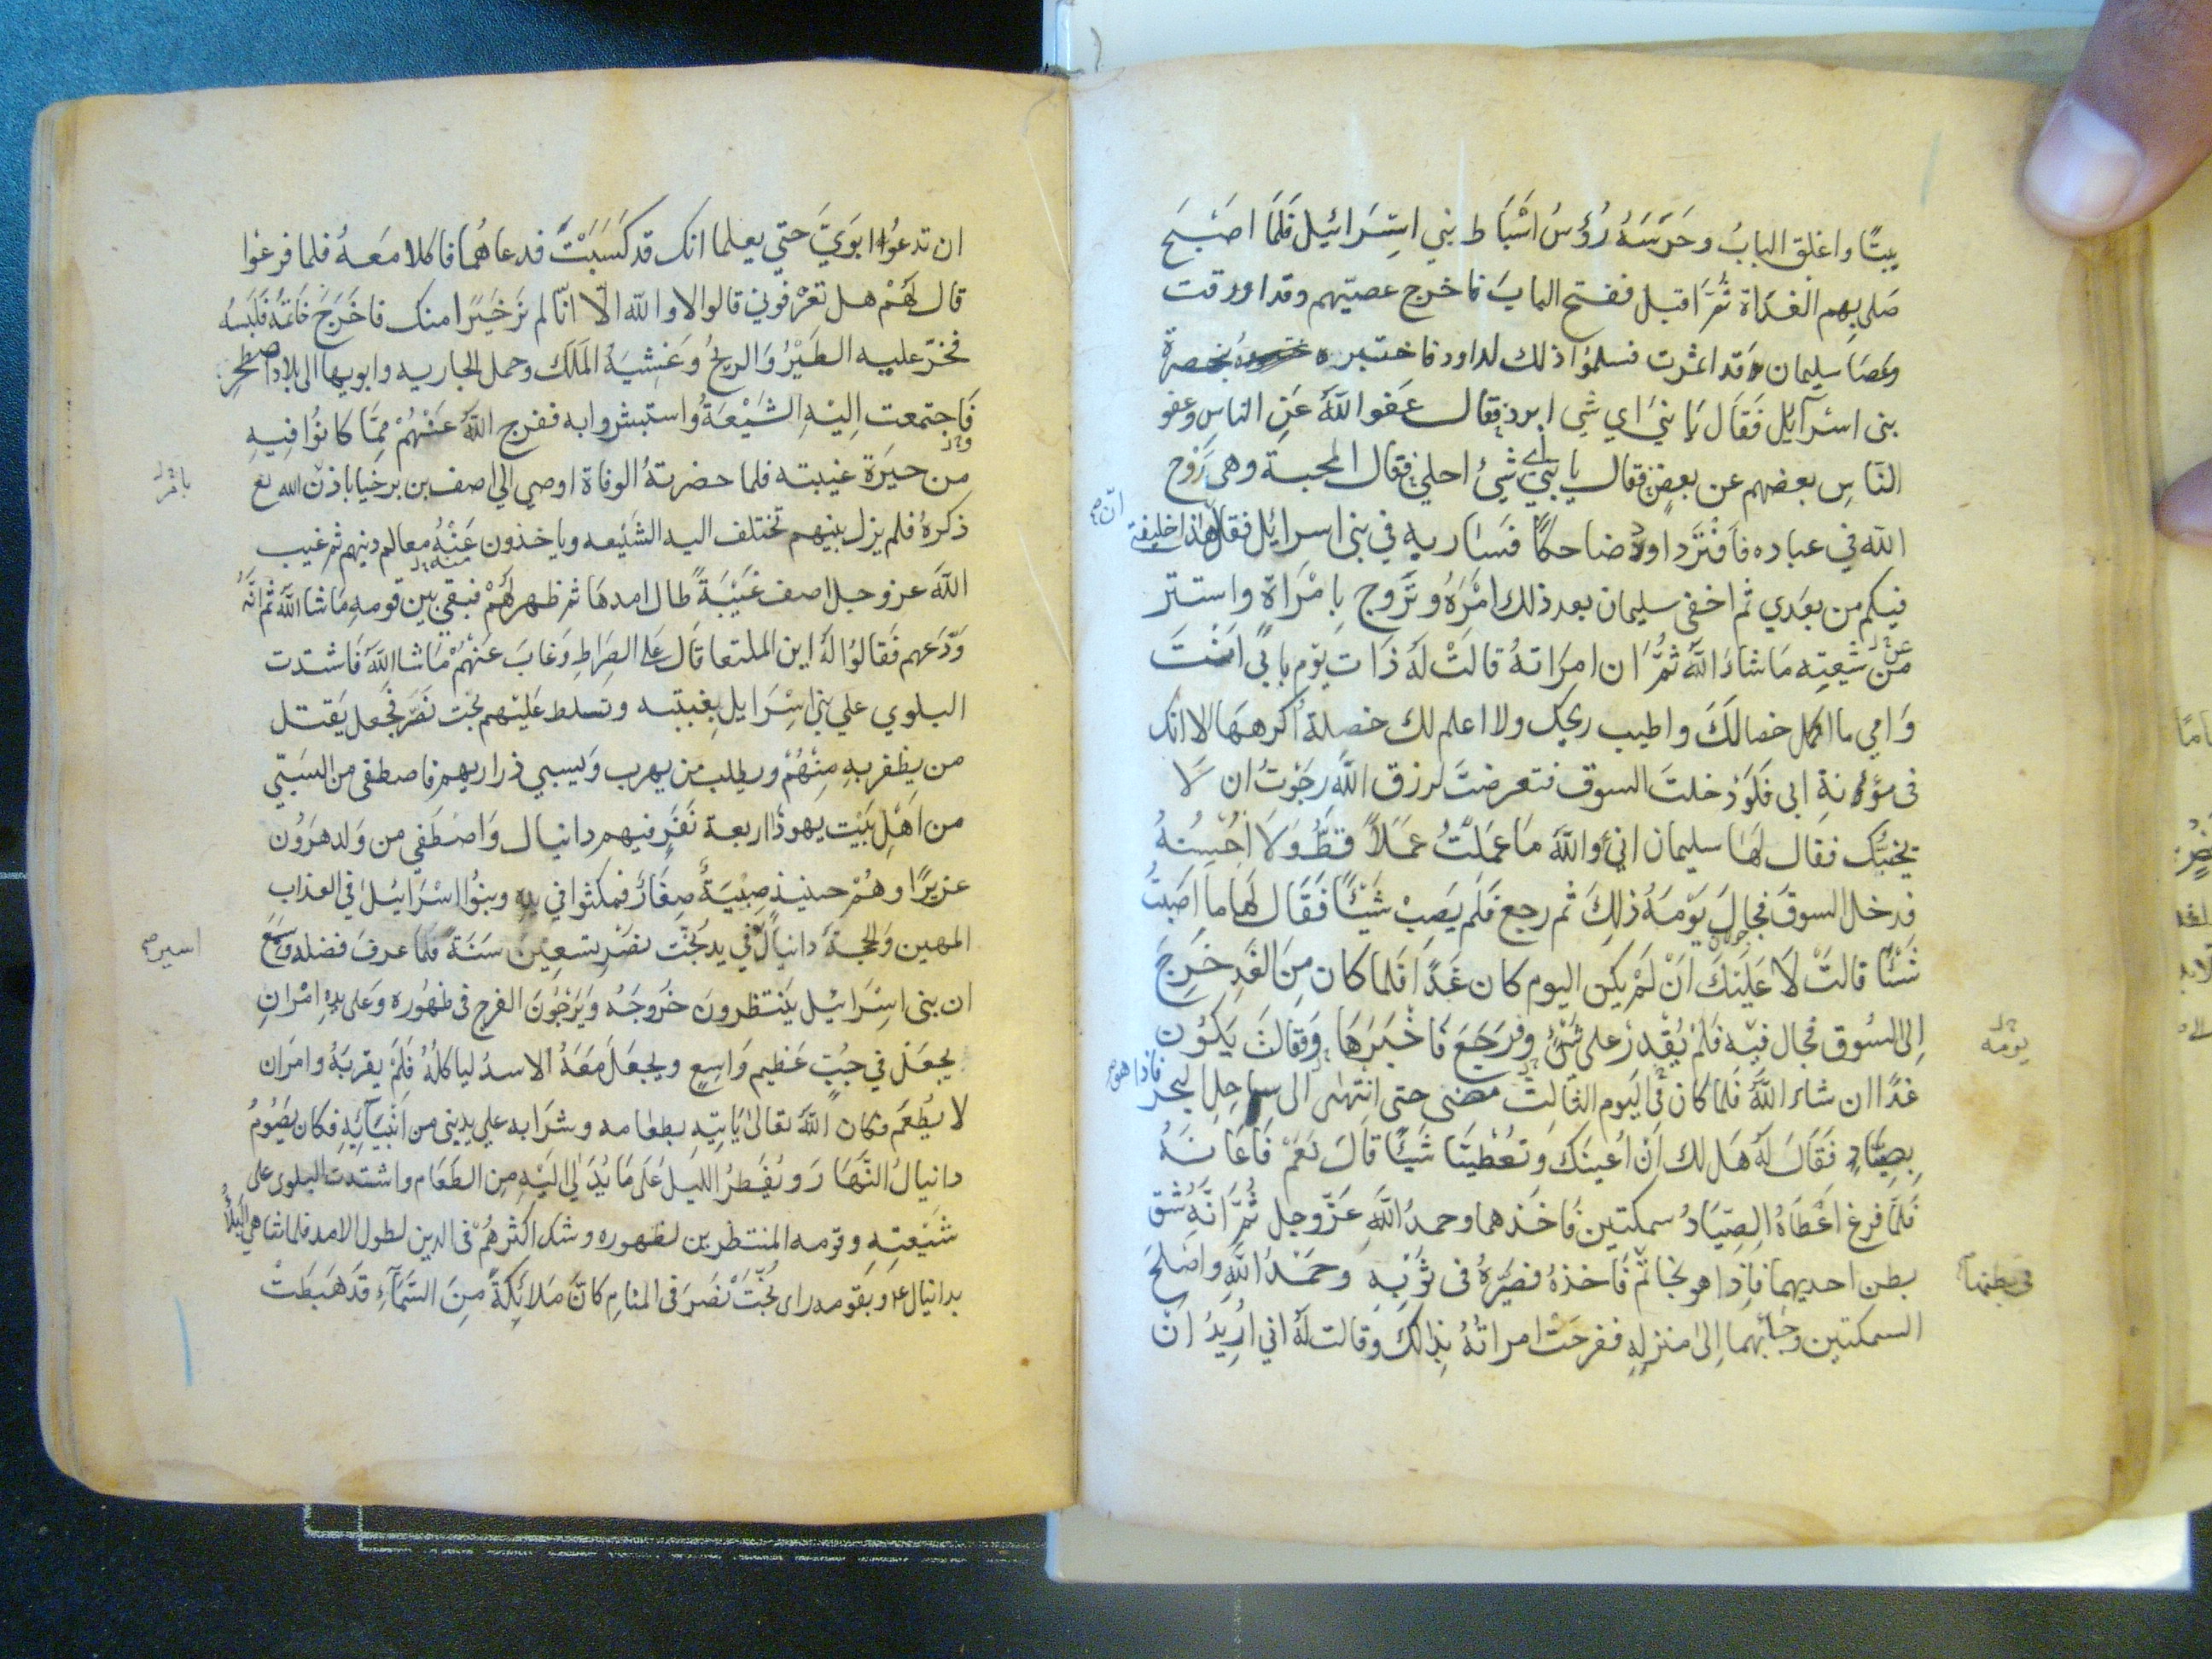 بيتًا واغلق الباب وحرسه رؤس اسباط بني اسرائيل فلما اصبح
صلى بهم الغداة ثم اقبل ففتح الباب فاخرج عصيهم وقد اورقت
وعصا سليمان قد اثمرت فسلموا ذلك لداود فاختبره بحضرة
بنى اسرآئيل فقال يا بني اي شي ابرد فقال عفو الله عن الناس وعفو
النّاس بعضهم عن بعض فقال يا بني اي شئ احلي فقال المحبة وهي روح
الله في عباده فافتر داود ضاحكا فسار به في بنى اسرائيل فقال هذا خليفتى
فيكم من بعدي ثم اخفى سليمان بعد ذلك امره وتزوج بامراة واستتر
من شيعته ما شاء الله ثم ان امراته قالت له ذات يوم بابي انت
وامي ما اكمل خصالك واطيب ريحك ولا اعلم لك خصلة اكرهها الا انك
فى مؤنة ابي فلو دخلت السوق فتعرضت لرزق الله رجوت ان لا
يخيبك فقال لها سليمان اني والله ما عملت عملا قط ولا احسنه
فدخل السوق فجال يومه ذلك ثم رجع فلم يصب شيئا فقال لها ما اصبت
شيئا قالت لا عليك ان لم يكن اليوم كان غدا فلما كان من الغد خرج
إلى السوق فجال فيه فلم يقدر على شئ ورجع فاخبرها وقالت يكون
غدًا ان شاء الله فلما كان في اليوم الثالث مضى حتى انتهى الى ساحل البحر فاذا هو
بصياد فقال له هل لك ان اعينك وتعطينا شيئا قال نعم فاعانه
فلما فرغ اعطاه الصياد سمكتين فاخذهما وحمد الله عز وجل ثم انه شق
بطن احديهما فاذا هو بخاتم فاخذه فصيره فى ثوبه وحمد الله واصلح
السمكتين وجابهما إلى منزله ففرحت امراته بذلك وقالت له اني اريد ان
يومه
فى بطنها
ان تدعوا ابوي حتي يعلما انك قد كسبت فدعاهما فاكلا معه فلما فرغوا
قال لهم هل تعرفوني قالوا لا والله الا انا لم نر خيرا منك فاخرج خاتمه فلبسه
فخر عليه الطير والريح وغشيه الملك وحمل الجاريه وابويها الى بلاد اصطخر
فاجتمعت إليه الشيعة واستبشروا به ففرج الله عنهم مما كانوا فيه
من حيرة غيبته فلما حضرته الوفاة اوصي الي اصف بن برخيا باذن الله تع
ذكره فلم يزل بينهم تختلف اليه الشيعه وياخذون عنه معالم دينهم ثم غيب
الله عز وجل اصف غيبة طال امدها ثم ظهر لهم فبقي بين قومه ما شا الله ثم انه
ودعهم فقالوا له اين الملتقا قال على الصراط وغاب عنهم ما شا الله فاشتدت
البلوي علي بني اسرايل بغيبته وتسلط عليهم بخت نصر فجعل يقتل
من يظفر به منهم ويطلب من يهرب ويسبي ذراريهم فاصطفى من السبي
من اهل بيت يهوذا اربعة نفر فيهم دانيال واصطفي من ولد هرون
عزيرًا وهم حينيذ صبية صغار فمكثوا في يده وبنوا اسرائيل في العذاب
المهين والحجة دانيال في يد بخت نصر تسعين سنة فلما عرف فضله وسمع
ان بنى اسرائيل ينتظرون خروجه ويرجون الفرج فى ظهوره وعلى يده امر ان
يجعل في جب عظيم واسع ويجعل معه الاسد لياكله فلم يقربه وامر ان
لا يطعم فكان الله تعالى ياتيه بطعامه وشرابه علي يد نبي من انبيآئه فكان يصوم
دانيال النهار ويفطر الليل على ما يدلي اليه من الطعام واشتدت البلوى على
شيعته وقومه المنتظرين لظهوره وشك اكثرهم فى الدين لطول الامد فلما تناهي البلا
بدانيال ع وبقومه راى بخت نصر فى المنام كان ملائكة من السمآء قد هبطت
بامر
اسير